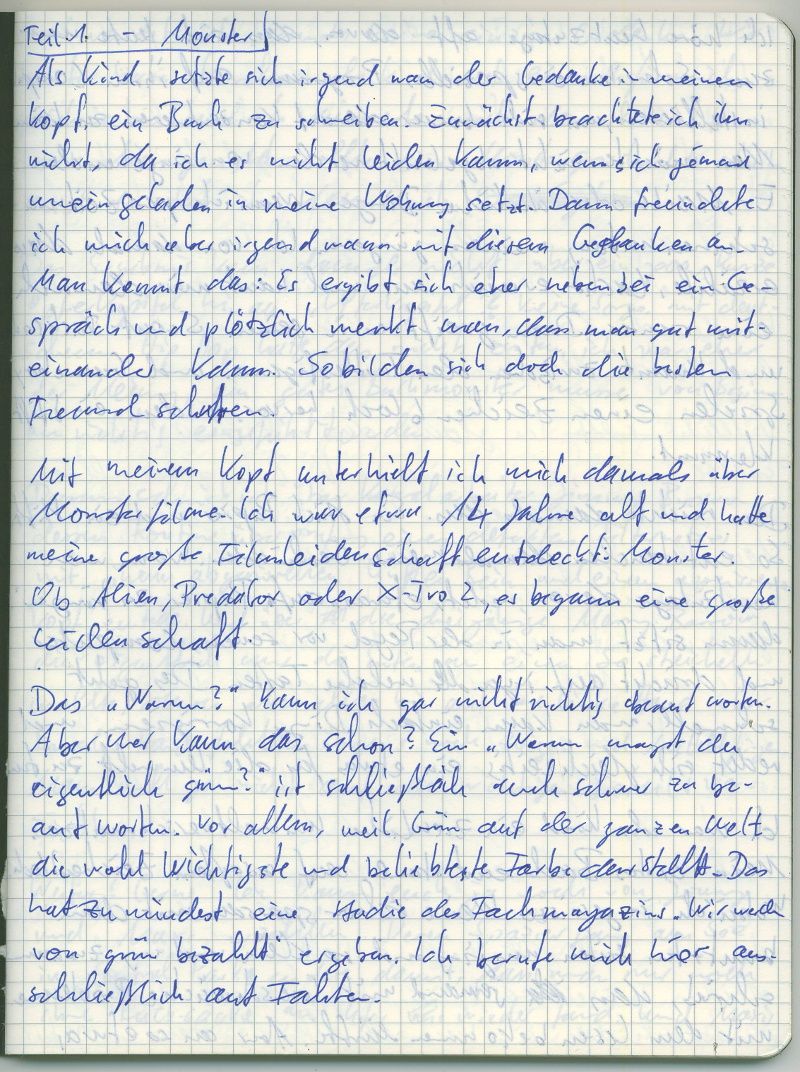 Teil 1. - Monster
Als Kind setzte sich irgendwann der Gedanke in meinem
Kopf, ein Buch zu schreiben. Zunächst beachtete ich ihn
nicht, da ich es nicht leiden kann, wenn sich jemand
uneingeladen in meine Wohnung setzt. Dann freundete
ich mich aber irgendwann mit diesem Gedanken an.
Man kennt das: Es ergibt sich eher nebenbei ein Ge-
spräch und plötzlich merkt man, dass man gut mit-
einander kann. So bilden sich doch die besten
Freundschaften.
Mit meinem Kopf unterhielt ich mich damals über
Monsterfilme. Ich war etwa 14 Jahre alt und hatte
meine große Filmleidenschaft entdeckt: Monster.
Ob Alien, Predator oder X-Tro 2, es begann eine große
Leidenschaft.
Das „Warum?" kann ich gar nicht richtig beantworten.
Aber wer kann das schon? Ein „Warum magst du
eigentlich grün?" ist schließlich auch schwer zu be-
antworten. Vor allem, weil Grün auf der ganzen Welt
die wohl wichtigste und beliebteste Farbe darstellt. Das
hat zumindest eine Studie des Fachmagazins „Wir werden
von grün bezahlt" ergeben. Ich berufe mich hier aus-
schließlich auf Fakten.